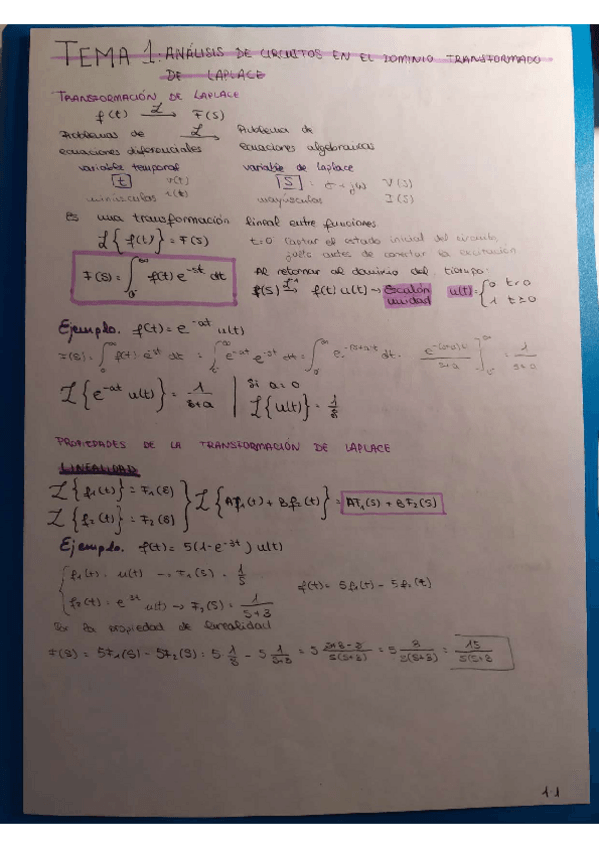 TEMA 1: ANÁLISIS DE CIRCUITOS EN EL DOMINIO TRANSFORMADO
DE LAPLACE
TRANSFORMACIÓN DE LAPLACE
f(t) —ℒ→ F(S)
Problemas de —ℒ→ Problema de
ecuaciones diferenciales ecuaciones algebraicas
variable temporal variable de Laplace
t v(t) i(t) S = σ + jω V(S) I(S)
minúsculas mayúsculas
Es una transformación lineal entre funciones
ℒ{f(t)} = F(S) t=0 captar el estado inicial del circuito,
justo antes de conectar la excitación
F(S) = ∫₀-^∞ f(t) e^-st dt Al retornar al dominio del tiempo:
F(S) —ℒ⁻¹→ f(t) u(t) → Escalón unidad u(t) = { 0 t<0
1 t≥0
Ejemplo. f(t) = e^-at u(t)
F(S) = ∫₀^∞ f(t) e^-st dt = ∫₀^∞ e^-at e^-st dt = ∫₀^∞ e^-(s+a)t dt = e^-(s+a)t / s+a ]₀^∞ = 1/s+a
ℒ{e^-at u(t)} = 1/s+a | Si a=0
ℒ{u(t)} = 1/s
PROPIEDADES DE LA TRANSFORMACIÓN DE LAPLACE
LINEALIDAD
ℒ{f₁(t)} = F₁(S)
ℒ{f₂(t)} = F₂(S) } ℒ{Af₁(t) + Bf₂(t)} = AF₁(S) + BF₂(S)
Ejemplo. f(t) = 5(1-e^-3t) u(t)
f₁(t) = u(t) → F₁(S) = 1/S
f(t) = 5f₁(t) - 5f₂(t)
f₂(t) = e^-3t u(t) → F₂(S) = 1/S+3
Por la propiedad de linealidad
F(S) = 5F₁(S) - 5F₂(S) = 5 1/S - 5 1/S+3 = 5 S+3-S/S(S+3) = 5 3/S(S+3) = 15/S(S+3
1.1